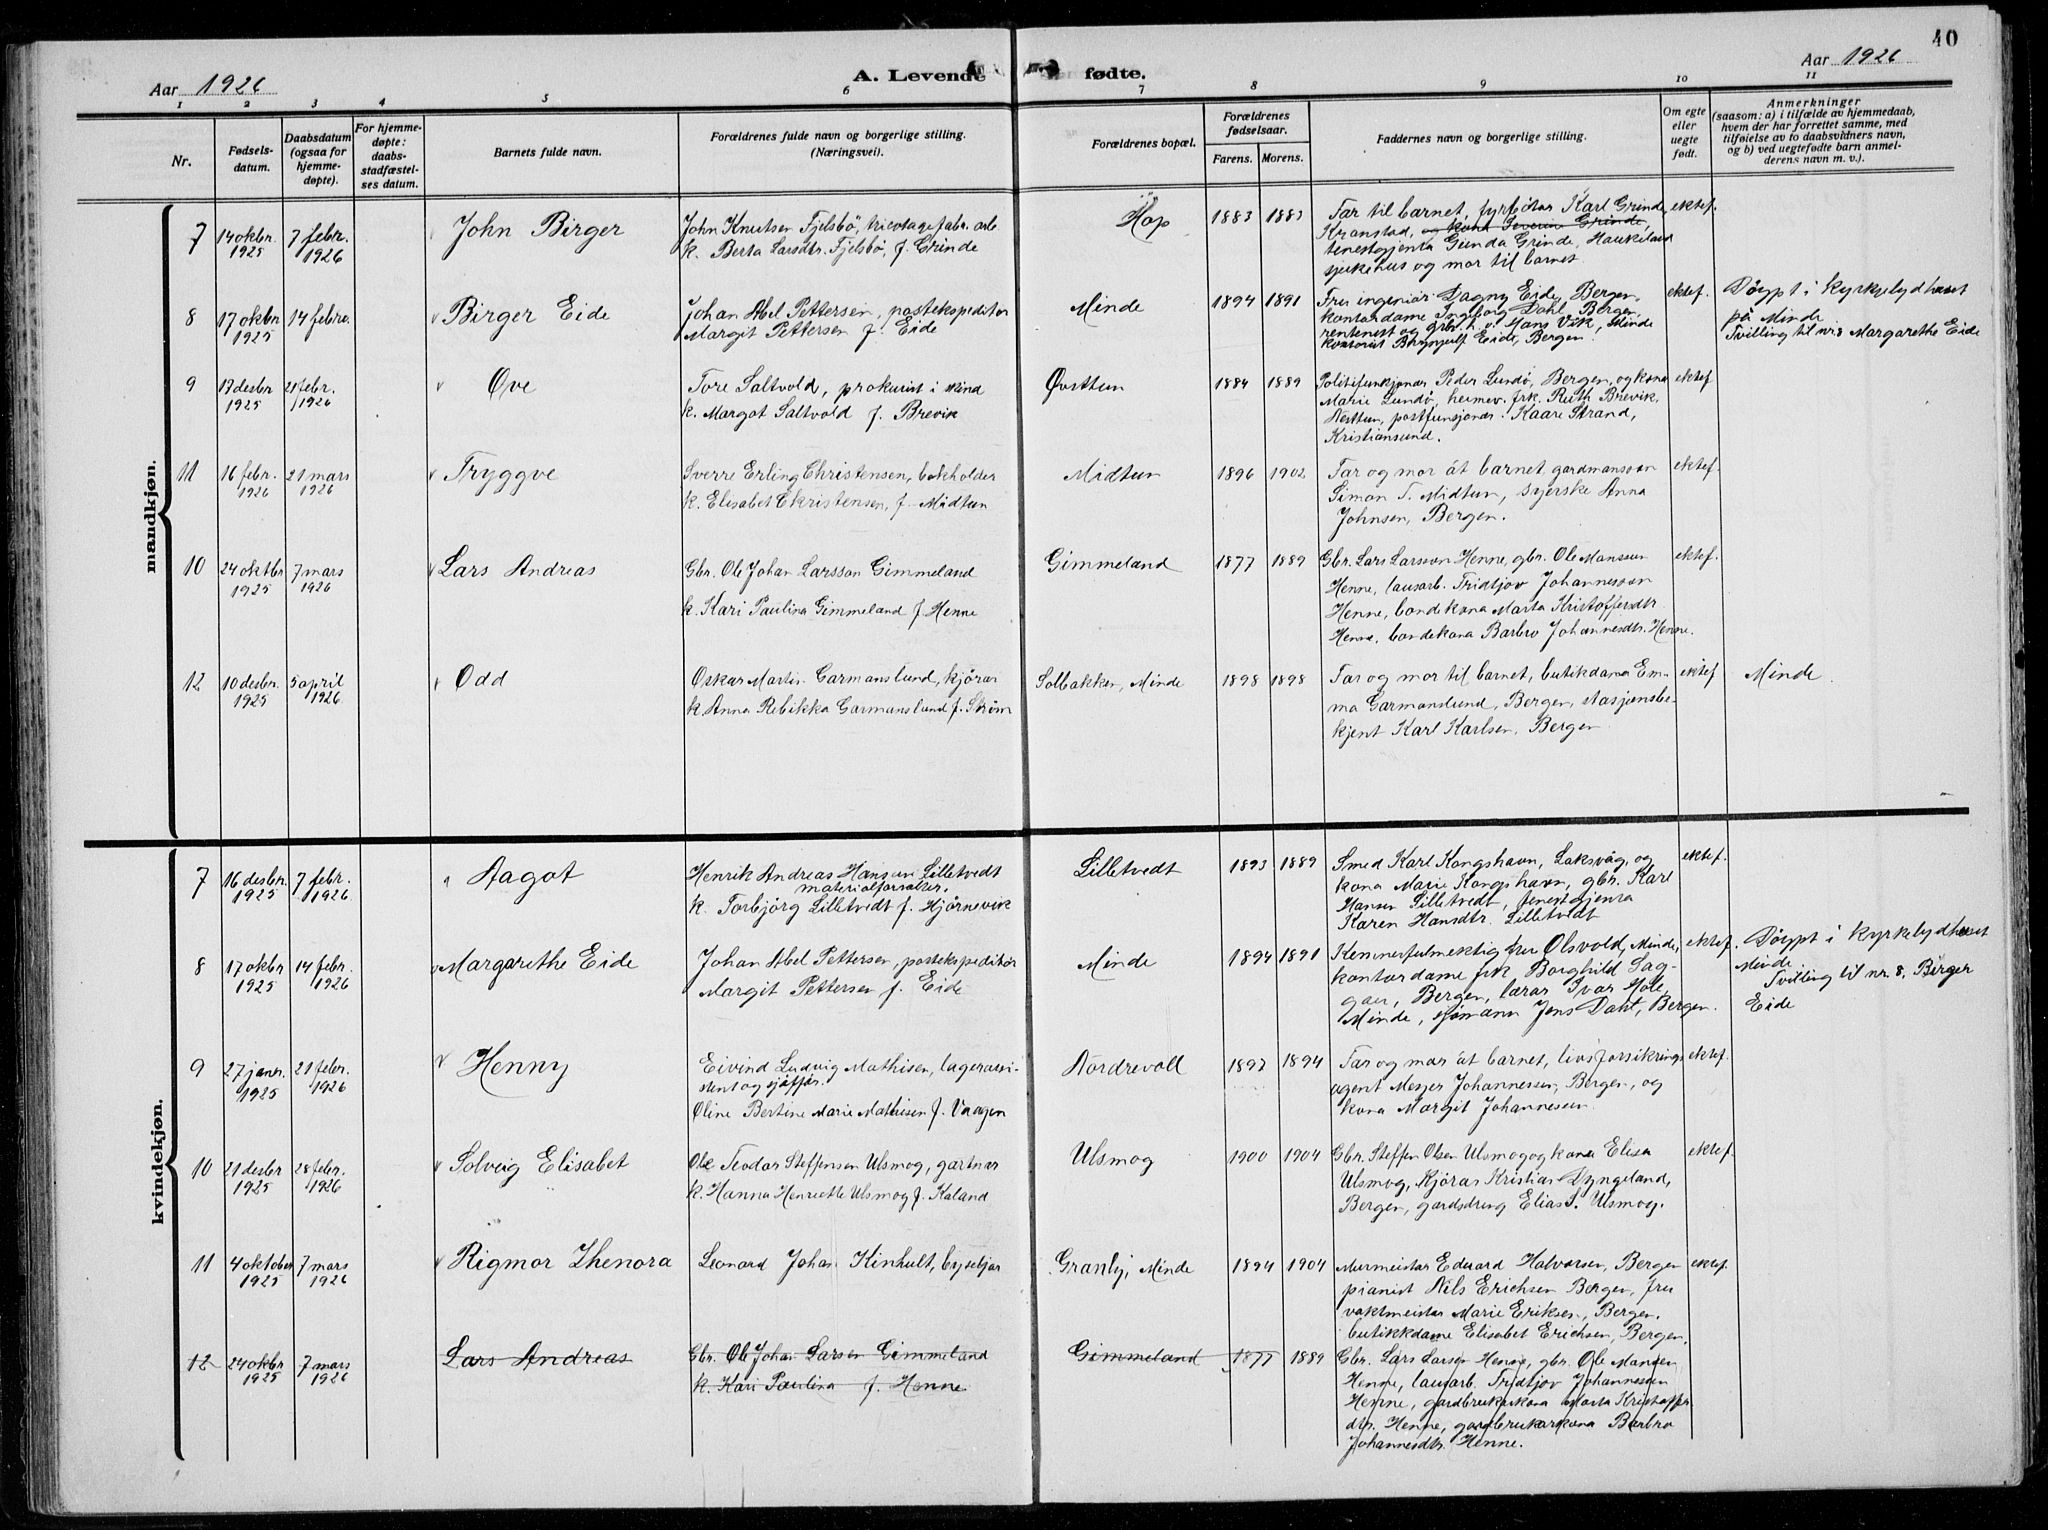 40
Aar 1926
A. Levende fødte.
Aar 1926
1 2 3 4 5 6 7 8 9 10 11
Nr.
Fødsels-
datum.
Daabsdatum
(ogsaa for
hjemme-
døpte).
For hjemme-
døpte:
daabs-
stadfæstel-
ses datum.
Barnets fulde navn.
Forældrenes fulde navn og borgerlige stilling.
(Næringsvei).
Forældrenes bopæl.
Forældrenes
fødselsaar.
Farens. Morens.
Faddernes navn og borgerlige stilling.
Om egte
eller
uegte
født.
Anmerkninger
(saasom: a) i tilfælde av hjemmedaab,
hvem der har forrettet samme, med
tilføielse av to daabsvidners navn,
og b) ved uegtefødte barn anmel-
derens navn m. v.).
mandkjøn.
7
14 oktbr.
1925
7 febr.
1926
John Birger
John Knutsen Fjelsbö, tricotagefabr. arb.
k. Berta Larsdtr. Fjelsbö, f. Grinde
Hop
1883 1883
Far til barnet, fyrbötar Karl Grinde,
Kranstad, og kona Severine Grinde,
tenestgjenta Gunda Grinde, Haukeland
sjukehus og mor til barnet.
ektef.
8
17 oktbr
1925
14 febr.
Birger Eide
Johan Abel Pettersen, postekspeditör
Margit Pettersen f. Eide
Minde
1894 1891
Fru ingeniör Dagny Eide, Bergen,
kontordame Ingborg Dahl, Bergen,
rentenist og grb.h. v. Hans Vik, Minde
kontorist Brynjulf Eide, Bergen.
ektef.
Döypt i kyrkelydhuset
på Minde
Tvilling til nr. 8 Margarethe Eide
9
13 desbr
1925
21 febr.
1926
Ove
Tore Saltvold, prokurist i skind
k. Margot Saltvold f. Brevik
Øvsttun
1884 1889
Politifunksjonær Peder Lundö, Bergen, og kona
Marie Lundö, heimev. frk. Ruth Brevik,
Nesttun, postfunsjonær Kaare Strand,
Kristiansund.
ektef
11
16 febr.
1926
21 mars
1926
Tryggve
Sverre Erling Christensen, bokholder
k. Elisabet Christensen, f. Midtun
Midtun
1896 1902
Far og mor åt barnet, gardmansson
Simon T. Midtun, syerske Anna
Johnsen, Bergen.
ektef.
10
24 oktbr
1925
7 mars
1926
Lars Andreas
Gbr. Ole Johan Larsson Gimmeland
k. Kari Paulina Gimmeland f. Henne
Gimmeland
1877 1889
Gbr. Lars Larsson Henne, gbr. Ole Mansson
Henne, lausarb. Fridtjov Johannesson
Henne, bondkona Marta Kristoffersdtr
Henne, bondekona Barbro Johannesdtr. Henne.
ektef.
12
10 desbr.
1925
5 april
1926
Odd
Oskar Martin Garmanslund, kjörar
k. Anna Rebikka Garmanslund f. Ström
Solbakken, Minde
1898 1898
Far og mor til barnet, butikdama Em-
ma Garmanslund, Bergen, stasjonsbe-
tjent Karl Karlsen, Bergen
ektef
Minde.
kvindekjøn.
7
16 desbr.
1925
7 febr.
1926
Aagot
Henrik Andreas Hansen Lilletvedt
materialforvalter.
k. Torbjörg Lilletvedt f. Hjörnevik
Lilletvedt
1893 1889
Smed Karl Kongshavn, Laksvåg, og
kona Marie Kongshavn, gbr. Karl
Hansen Lilletvedt, tenestgjenta
Karen Hansdtr. Lilletvedt
ektef.
8
17 oktbr
1925
14 febr.
1926
Margarethe Eide
Johan Abel Pettersen, postekspeditör
Margit Pettersen f. Eide
Minde
1894 1891
Kemnerfulmektig fru Olsvold, Minde,
kontordame frk. Borghild Sag-
gau, Bergen, lærar Ivar Hole,
Minde, sjömann Jens Dahl, Bergen.
ektef.
Döypt i kyrkelydhuset
Minde
Tvilling til nr. 8, Birger
Eide
9
27 janr.
1925
21 febr.
1926
Henny
Eivind Ludvig Mathisen, lagerassi-
stent og sjåfför.
Oline Bertine Marie Mathisen f. Vaagen
Nordrevoll
1897 1894
Far og mor åt barnet, livsforsikrings
agent Mesjer Johannessen, Bergen, og
kona Margit Johannesen
ektef.
10
21 desbr
1925
28 febr.
1926
Solveig Elisabet
Ole Teodor Steffensen Ulsmog, gartner
k. Hanna Henriette Ulsmog f. Kaland
Ulsmog
1900 1904
Gbr. Steffen Olsen Ulsmog og kona Elisa
Ulsmog, Kjörar Kristian Dyngeland,
Bergen, gardsdreng Elias S. Ulsmog.
ektef.
11
4 oktober
1925
7 mars
1926
Rigmor Lhenora
Leonard Johan Kinhult, byseljar
Granly, Minde
1894 1904
Murmeistar Edvard Halvorsen, Bergen
pianist Nils Erichsen Bergen, fru
vaktmeistar Marie Eriksen, Bergen.
butikkdame Elisabet Erichsen, Bergen.
ektef.
12
24 oktbr
1925
7 mars
1926
Lars Andreas
Gbr. Ole Johan Larsen Gimmeland
k. Kari Paulina f. Henne
Gimmeland
1877 1889
Gbr. Lars Larsen Henne, gbr. Ole Mansen
Henne, lausarb. Fridtjov Johannessen
Henne, gardbrukarkona Marta Kristoffer
dtr. Henne, gardbrukarkona Barbro
Johannesdtr. Henne.